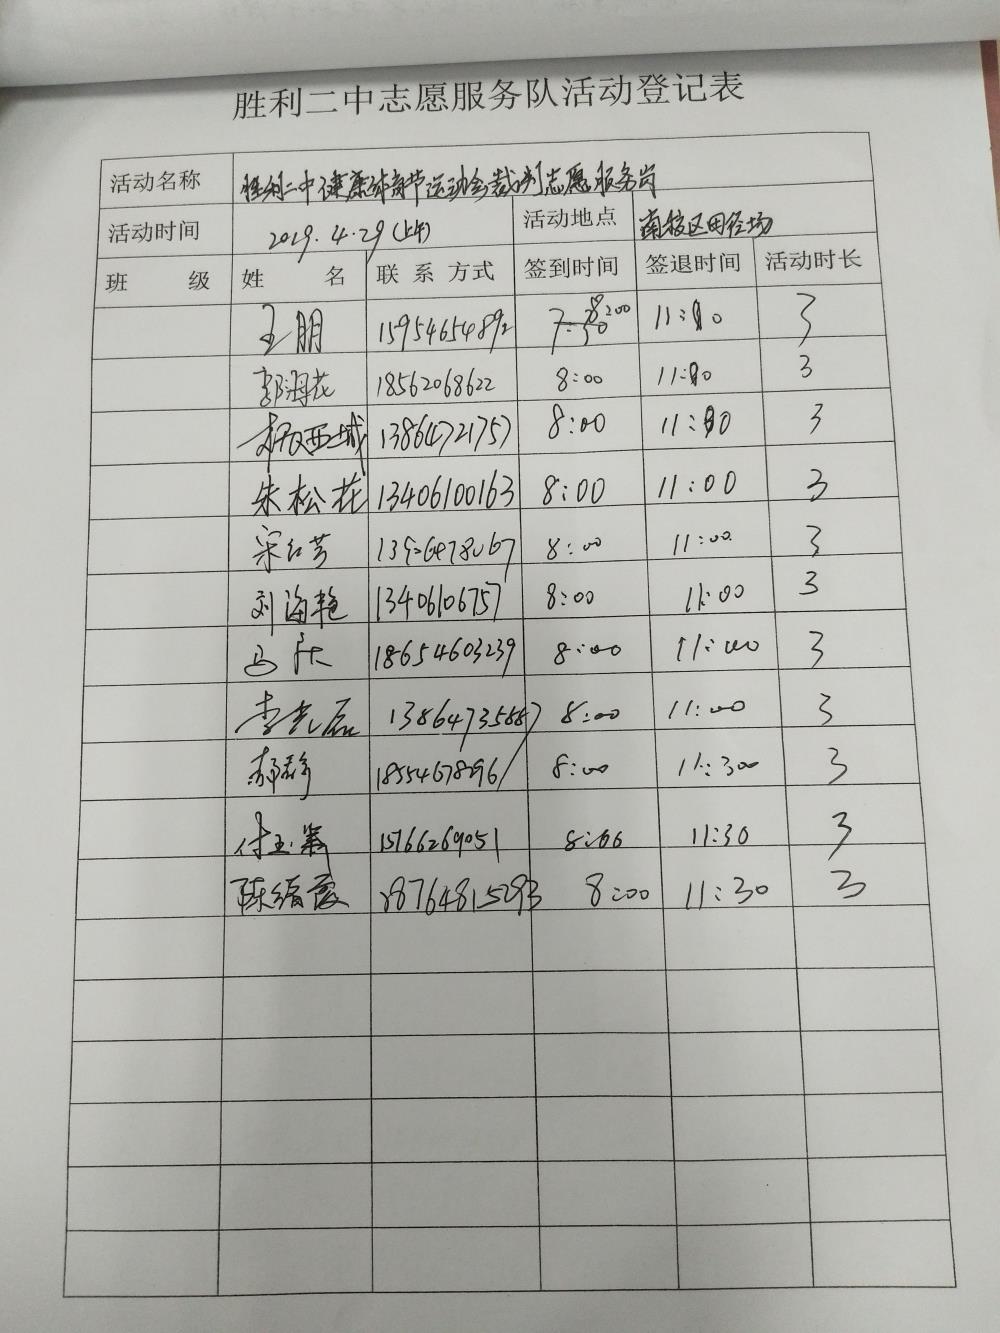 胜利二中志愿服务队活动登记表
活动名称 胜利二中健康体育节运动会裁判志愿服务岗
活动时间 2019.4.29(上午) 活动地点 南校区田径场
班 级 姓 名 联系方式 签到时间 签退时间 活动时长
王朋 15954654892 8:00 3
郭海花 18562068622 8:00 3
西城 13864721757 8:00 3
朱松花 13406100163 8:00 11:00 3
宋红芳 8:00 11:00 3
刘海艳 13406106757 8:00 11:00 3
马 18654603239 8:00 11:00 3
李光磊 8:00 11:00 3
郝静 8:00 11:30 3
付玉 15166269051 8:00 11:30 3
陈绪霞 18764815293 8:00 11:30 3